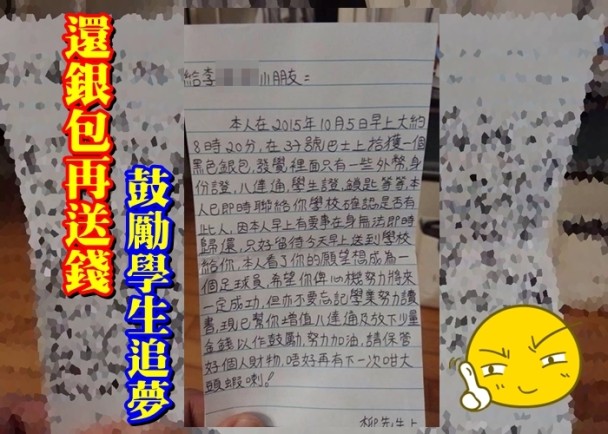 還銀包再送錢
鼓勵學生追夢
給李 小朋友：
本人在2015年10月5日早上大約
8時20分，在3分號巴士上拾獲一個
黑色銀包，發覺裡面只有一些外幣，身
份證，八達通，學生證，鎖匙等等，本
人已即時聯絡你學校確認是否有
此人，因本人早上有要事在身無法即時
歸還，只好留待今天早上送到學校
給你，本人看了你的願望稿成為一
個足球員，希望你俾心機努力將來
一定成功，但亦不要忘記學業努力讀
書，現已幫你增值八達通及放下少量
金錢以作鼓勵，努力加油，請保管
好個人財物，唔好再有下一次咁大
頭蝦喇！
柳先生上